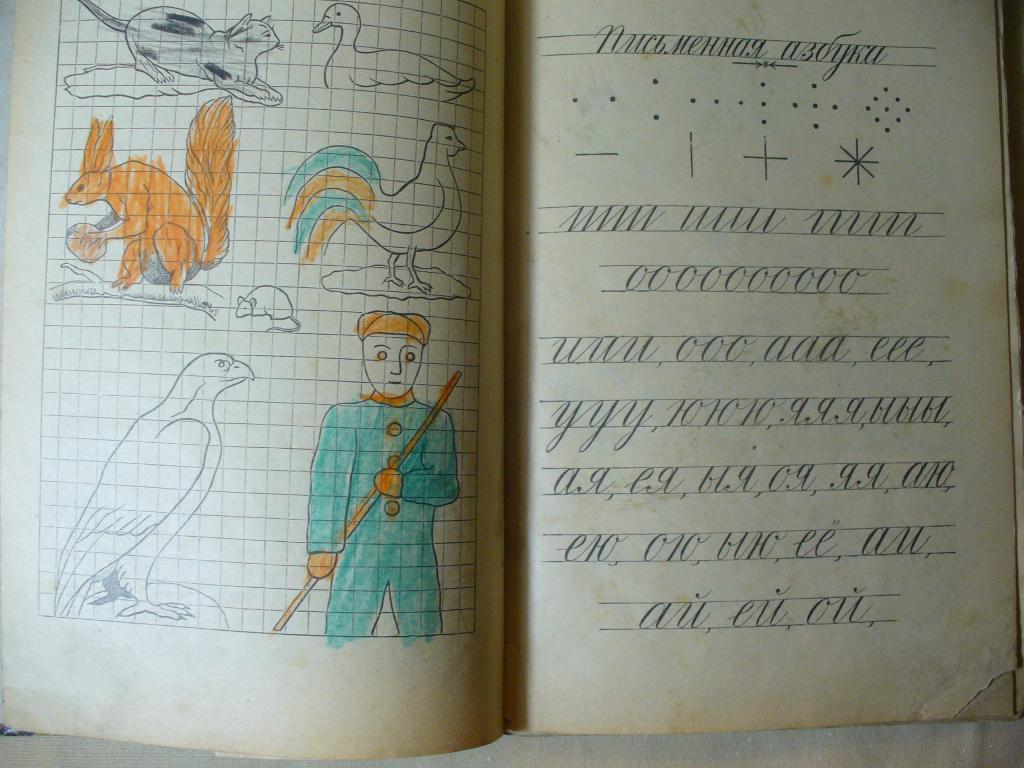 Письменная азбука
ттт иии ттт
оооооооооо
иии, ооо, ааа, еее,
ууу, ююю, яяя, ыыы,
ая, ея, ыя, оя, яя, аю,
ею, ою, ыю, её, аи,
ай, ей, ой,